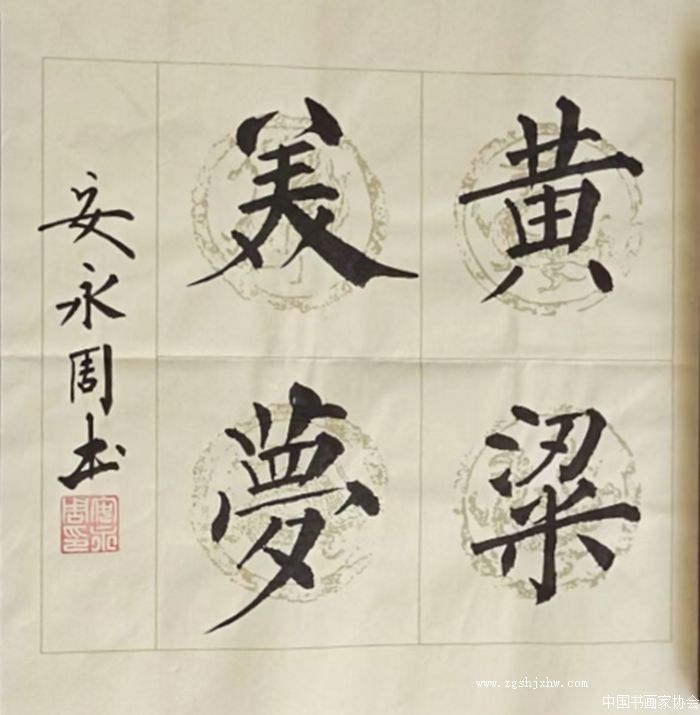 黄粱
美夢
安永周书
安永周印
www.zgshjxhw.com
中国书画家协会